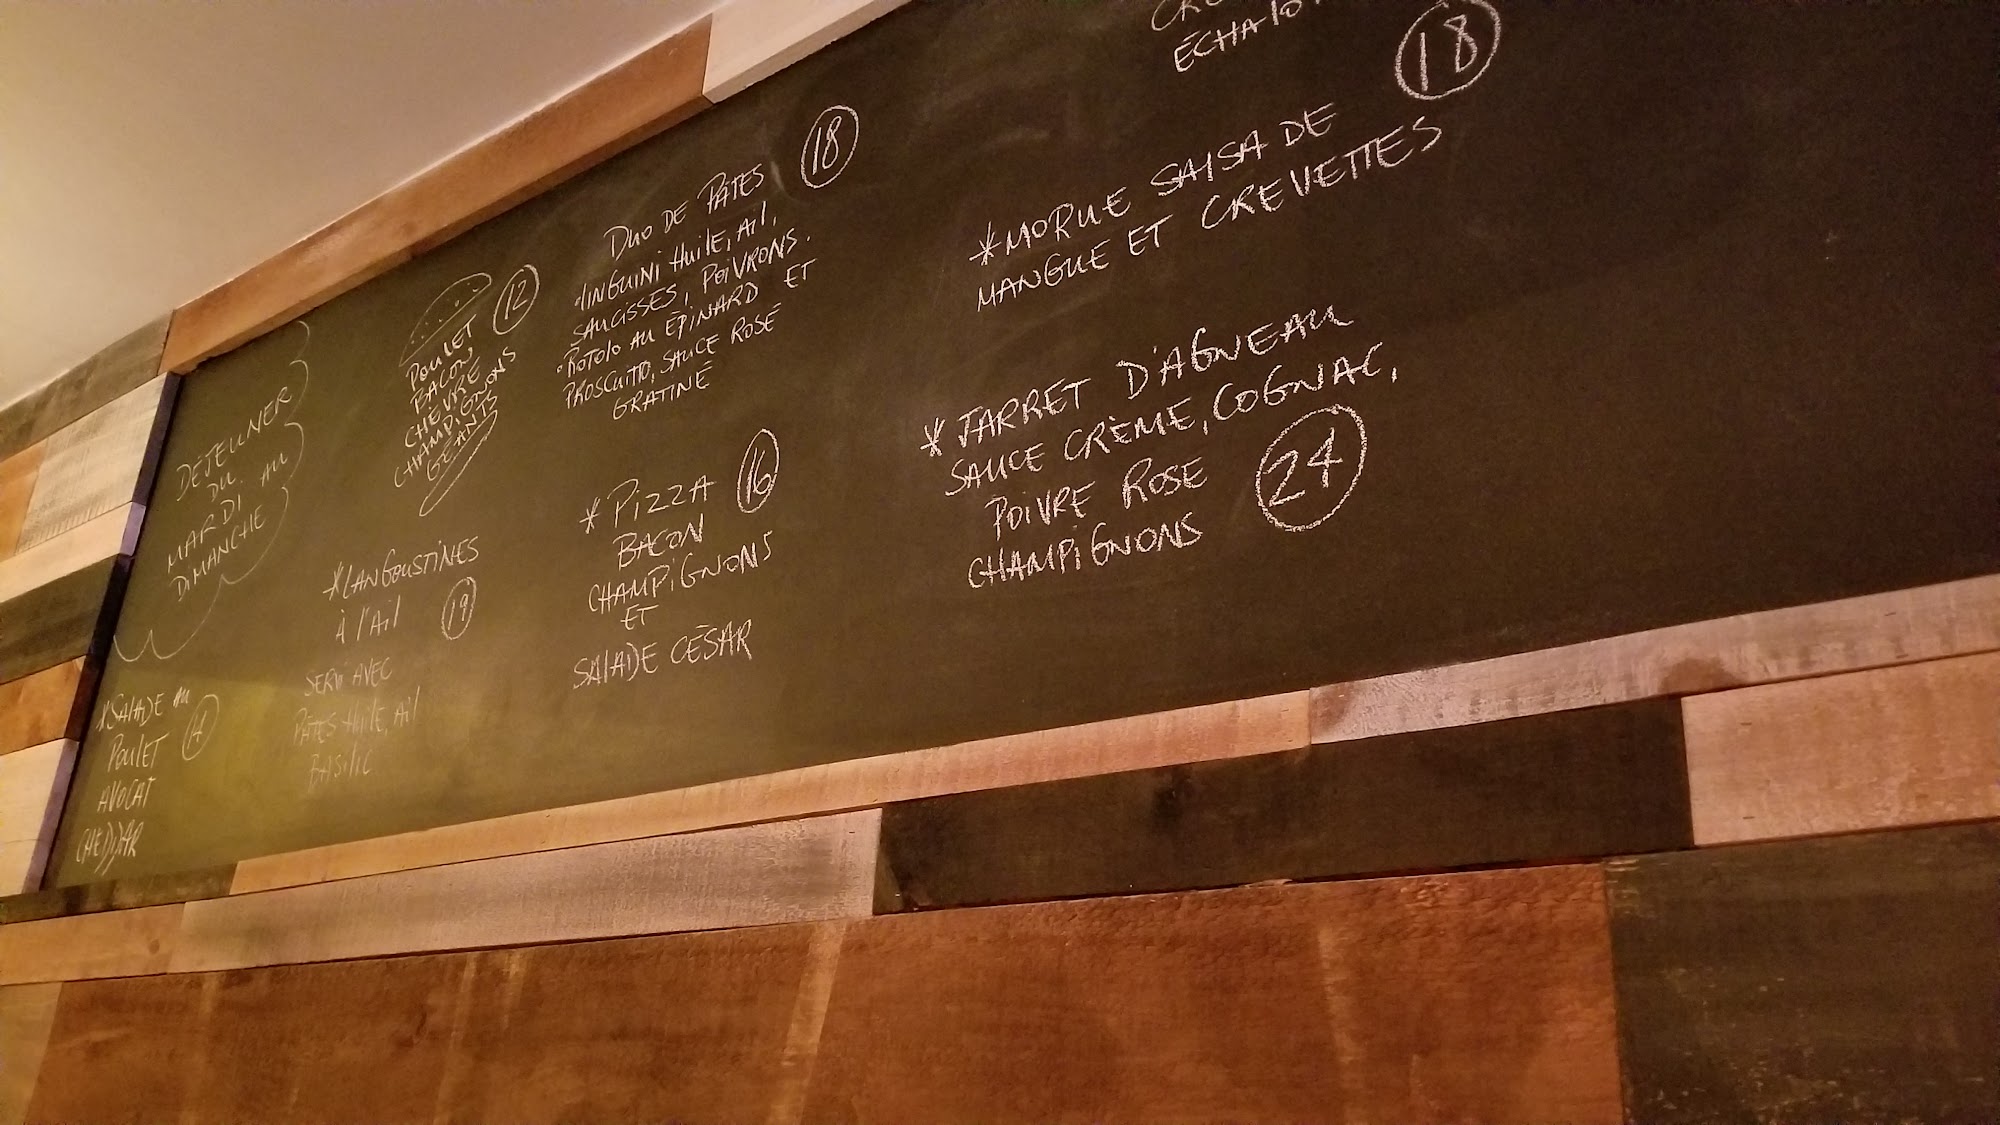 DÉJEUNER
DU
MARDI AU
DIMANCHE
*SALADE AU
POULET 14
AVOCAT
CHEDDAR
12
POULET
BACON
CHÈVRE
CHAMPIGNONS
GÉANTS
*LANGOUSTINES
À l'Ail 19
SERVI AVEC
PÂTES HUILE, Ail
BASILIC
DUO DE PÂTES 18
•LINGUINI HUILE, AIL,
SAUCISSES, POIVRONS.
•ROTOLO AU ÉPINARD ET
PROSCUITTO, SAUCE ROSÉ
GRATINÉ
*PIZZA 16
BACON
CHAMPIGNONS
ET
SALADE CÉSAR
18
*MORUE SALSA DE
MANGUE ET CREVETTES
*JARRET D'AGNEAU
SAUCE CRÈME, COGNAC,
POIVRE ROSE 24
CHAMPIGNONS